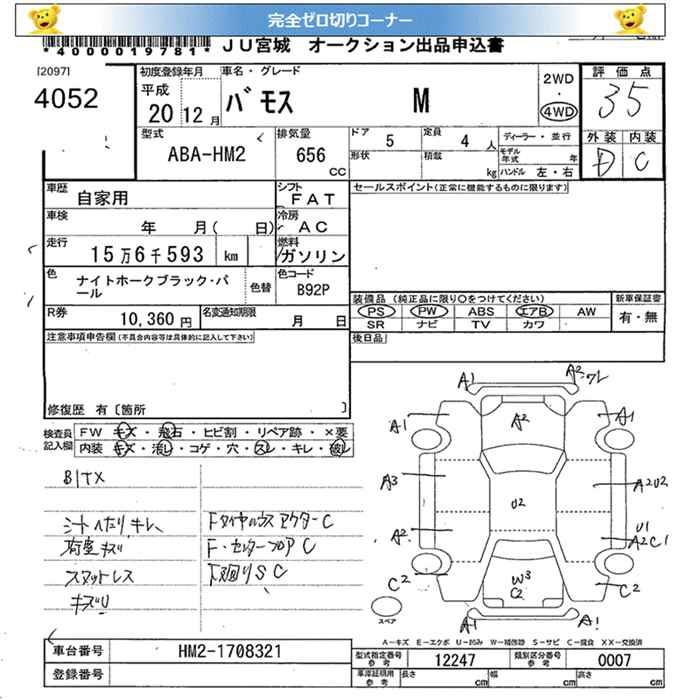 完全ゼロ切りコーナー
*4000019781* JU宮城 オークション出品申込書
[2097]
4052
初度登録年月
平成
20 12 月
車名・グレード
バモス M
2WD
・
4WD
評価点
3.5
外装 内装
D C
型式
ABA-HM2
排気量
656 CC
ドア 5
定員 4 人
形状
積載 kg
ディーラー・並行
モデル年式 年
ハンドル 左・右
車歴 自家用
シフト FAT
セールスポイント(正常に機能するものに限ります)
車検 年 月( 日)
冷房 AC
走行 15万6千593 km
燃料 ガソリン
色 ナイトホークブラック・パール
色替
色コード B92P
R券 10,360 円
名変通知期限 月 日
装備品(純正品に限り○をつけてください)
PS PW ABS エアB AW
SR ナビ TV カワ
新車保証書
有・無
後日品
注意事項申告欄(不具合内容等は具体的に記入して下さい)
修復歴 有〔箇所 〕
検査員記入欄
FW キズ・飛石・ヒビ割・リペア跡・×要
内装 キズ・汚れ・コゲ・穴・スレ・キレ・破れ
シートヘタリ,キレ
荷室キズ
キズU
FタイヤハウスアウターC
F・センターフロアC
下廻りSC
A1
A2 ワレ
A1
A2
A1
A3
U2
A2U2
A2
U1
A2C1
C2
W3
C2
C2
A1
A1
スペア
A－キズ E－エクボ U－凹み W－補修跡 S－サビ C－腐食 XX－交換済
車台番号 HM2-1708321
登録番号
型式指定番号 参考 12247
類別区分番号 参考 0007
車庫証明用 参考 長さ cm 幅 cm 高さ cm